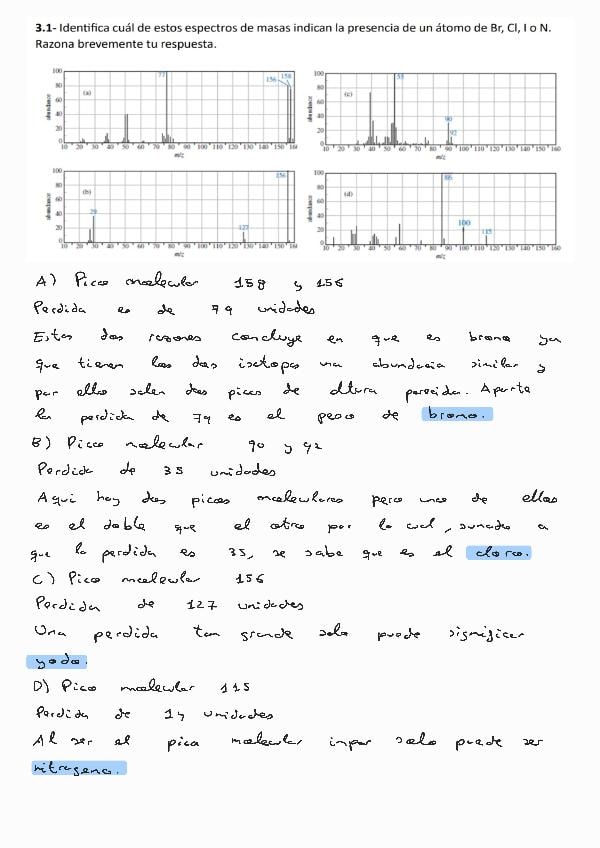 3.1- Identifica cuál de estos espectros de masas indican la presencia de un átomo de Br, Cl, I o N.
Razona brevemente tu respuesta.
100
80
60
40
20
0
abundance
(a)
77
156
158
10 20 30 40 50 60 70 80 90 100 110 120 130 140 150 160
m/z
100
80
60
40
20
0
abundance
(c)
55
90
92
10 20 30 40 50 60 70 80 90 100 110 120 130 140 150 160
m/z
100
80
60
40
20
0
abundance
(b)
29
127
156
10 20 30 40 50 60 70 80 90 100 110 120 130 140 150 160
m/z
100
80
60
40
20
0
abundance
(d)
86
100
115
10 20 30 40 50 60 70 80 90 100 110 120 130 140 150 160
m/z
A) Pico molecular 158 y 156
Perdida es de 79 unidades
Estas dos razones concluye en que es bromo ya
que tienen los dos isotopos una abundacia similar y
por ello salen dos picos de altura parecida. Aparte
la perdida de 79 es el peso de bromo.
B) Pico molecular 90 y 92
Perdida de 35 unidades
Aqui hay dos picos moleculares pero uno de ellos
es el doble que el otro por lo cual, sumado a
que la perdida es 35, se sabe que es el cloro.
C) Pico molecular 156
Perdida de 127 unidades
Una perdida tan grande solo puede significar
yodo.
D) Pico molecular 115
Perdida de 14 unidades
Al ser el pico molecular impar solo puede ser
nitrogeno.